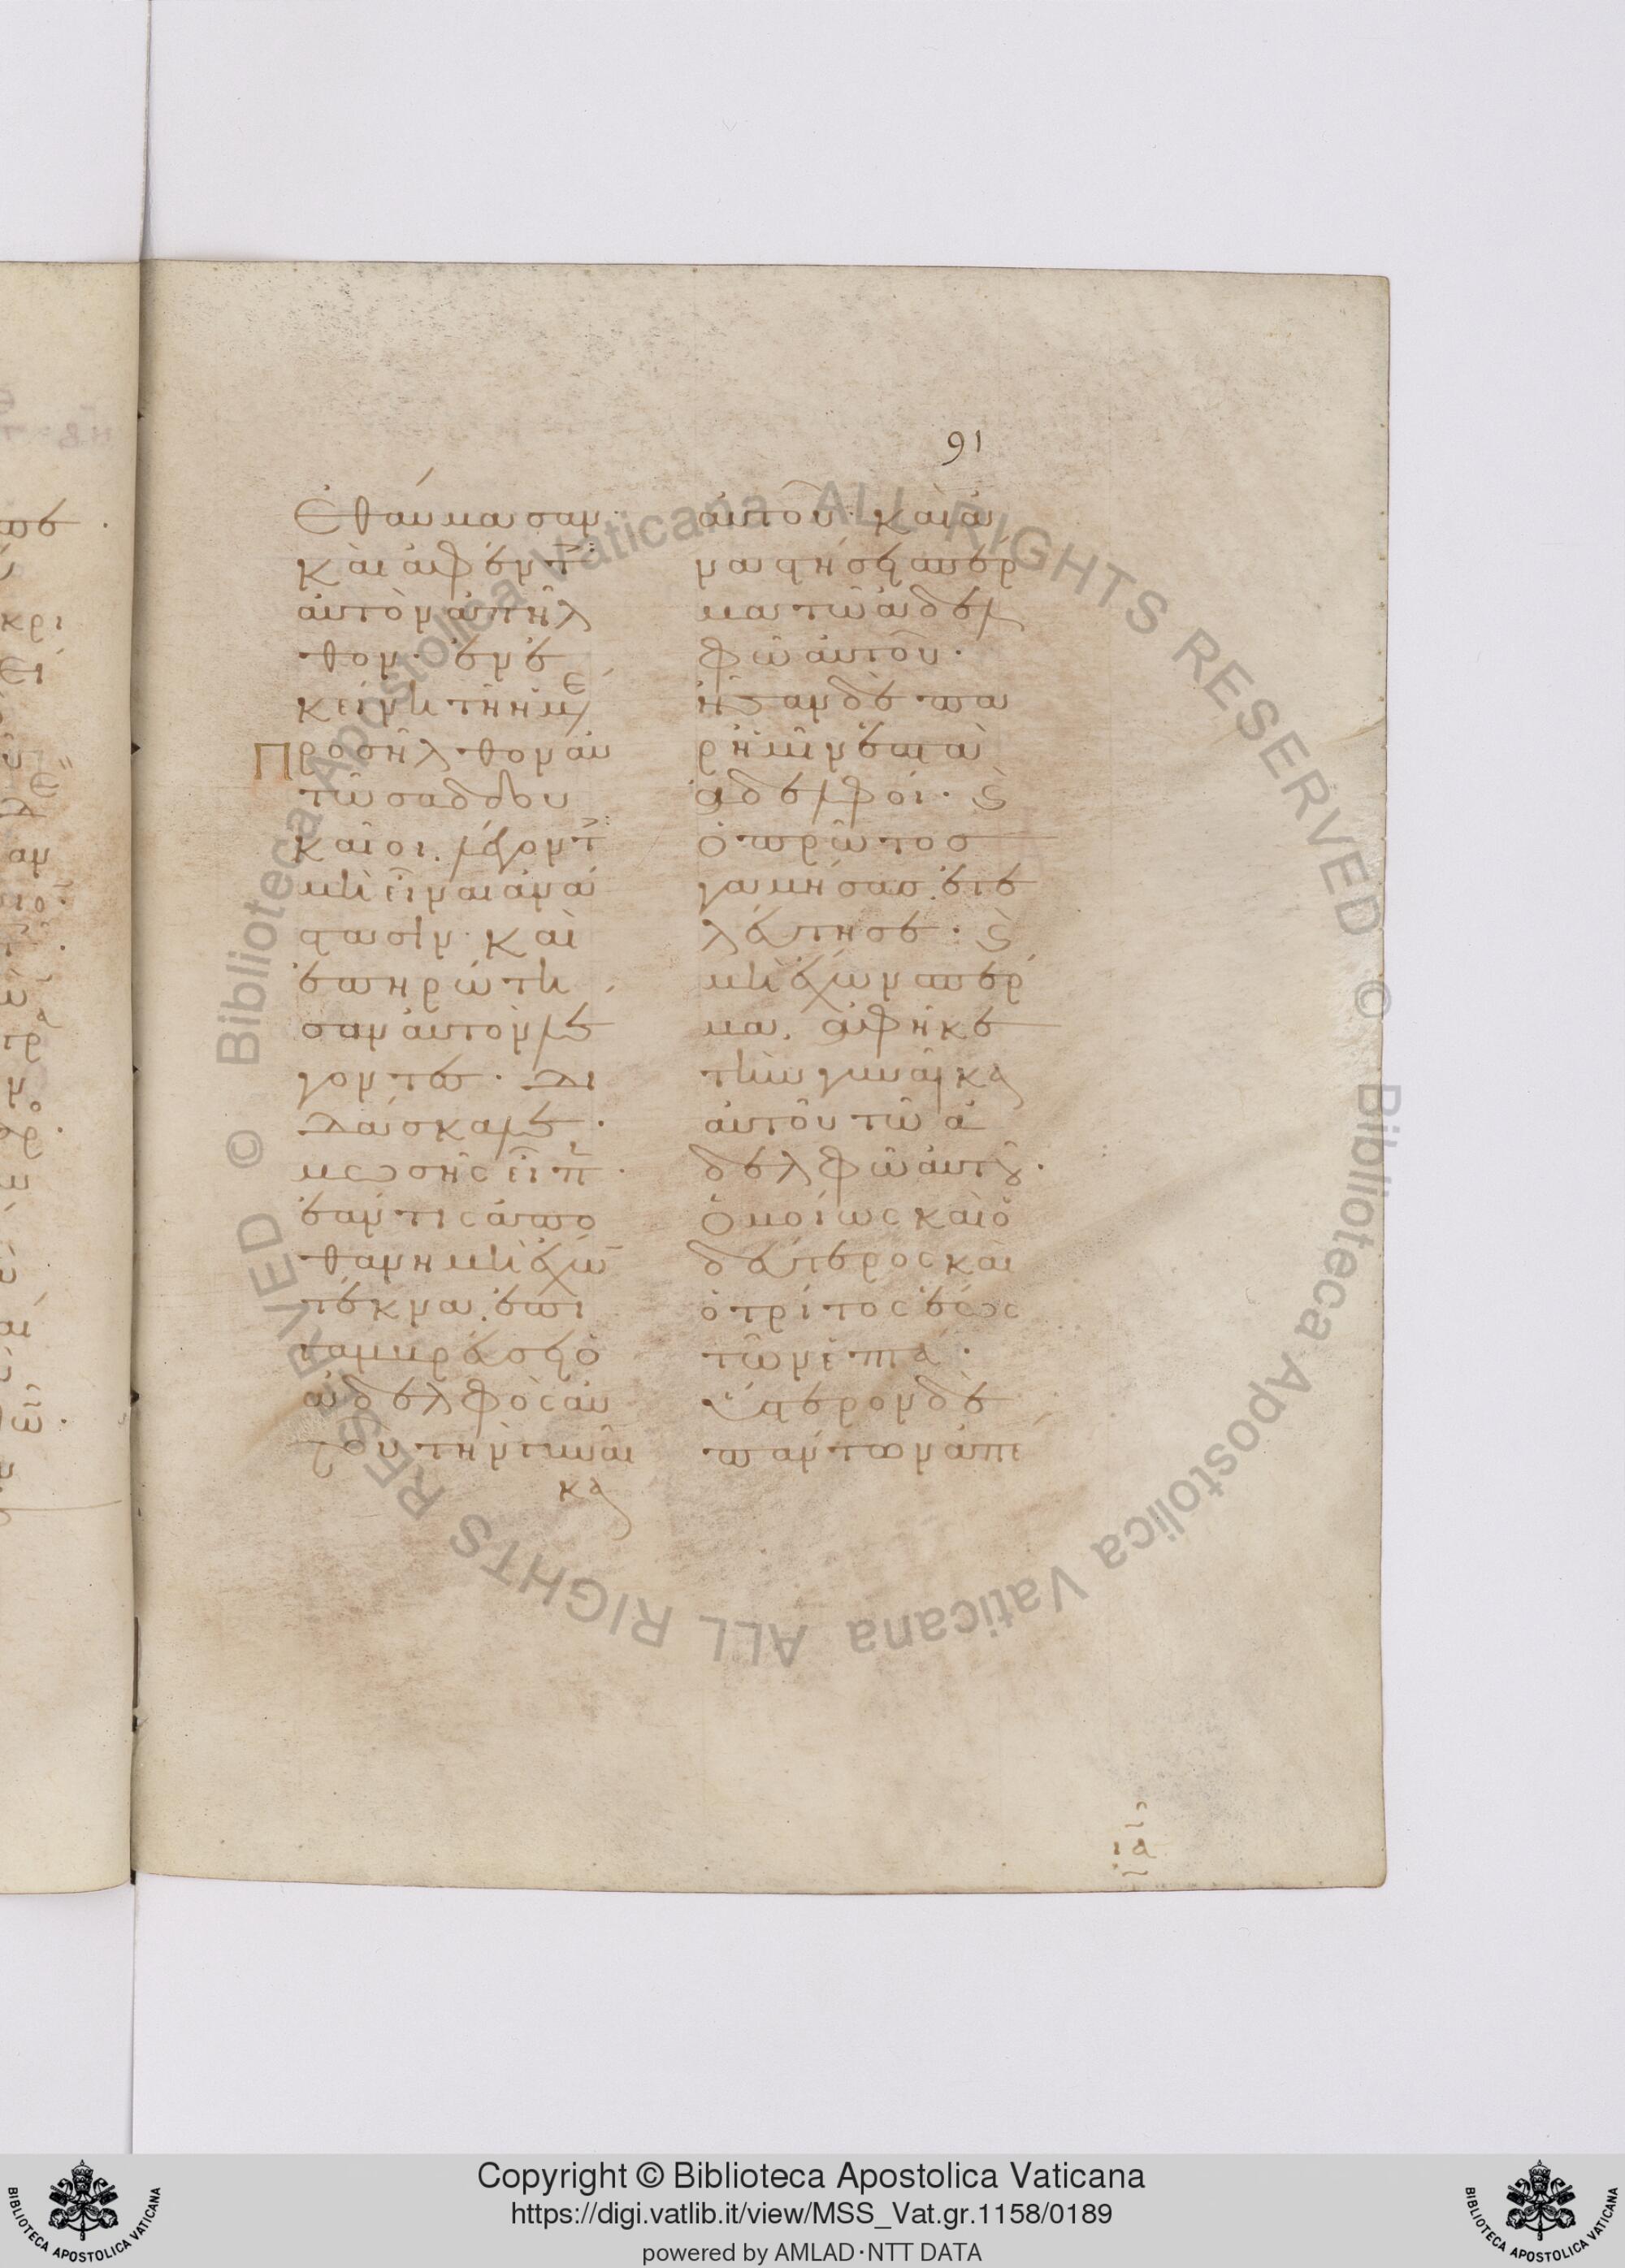 91
Ἐθαύμασαν·
καὶ ἀφέντ
αὐτὸν ἀπῆλ
θον· ἐν ἐ
κείνη τῆ ἡμ
Προσῆλθον αὐ
τῶ σαδδου
καῖοι. λέγοντ
μὴ εἶναι ἀνά
στασιν· καὶ
ἐπηρώτη
σαν αὐτὸν λέ
γοντες· δι
δάσκαλε·
μωσῆς εἶπ·
ἐάν τις ἀπο
θάνη μὴ ἔχω
τέκνα. ἐπι
γαμβρεύσει ὁ
ἀδελφὸς αὐ
τοῦ τὴν γυναῖ
κα
αὐτοῦ· καὶ ἀ
ναστήσει σπέρ
μα τῶ ἀδελ
φῶ αὐτοῦ·
ἦσαν δὲ πα
ρ' ἡμῖν ἑπτὰ
ἀδελφοί· ϗ
ὁ πρῶτος
γαμήσας. ἐτε
λεύτησε· ϗ
μὴ ἔχων σπέρ
μα. ἀφῆκε
τὴν γυναῖκα
αὐτοῦ τῶ ἀ
δελφῶ αὐτοῦ·
Ὁμοίως καὶ ὁ
δεύτερος καὶ
ὁ τρίτος ἕως
τῶν ἑπτά·
ὕστερον δὲ
πάντων ἀπέ
ια
Copyright © Biblioteca Apostolica Vaticana
https://digi.vatlib.it/view/MSS_Vat.gr.1158/0189
powered by AMLAD·NTT DATA
BIBLIOTECA APOSTOLICA VATICANA
BIBLIOTECA APOSTOLICA VATICANA
© Biblioteca Apostolica Vaticana ALL RIGHTS RESERVED © Biblioteca Apostolica Vaticana ALL RIGHTS RESERVED